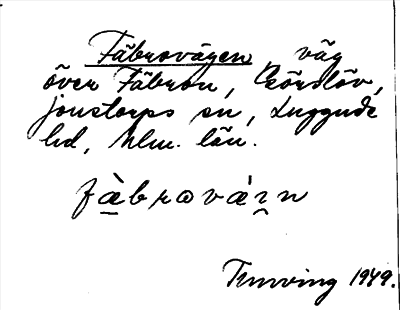 Fäbrovägen, väg
över Fäbron, Görslöv,
Jonstorps sn, Luggude
hd, Mlm. län.
fæ̀brovæ̀ɪn
1949.